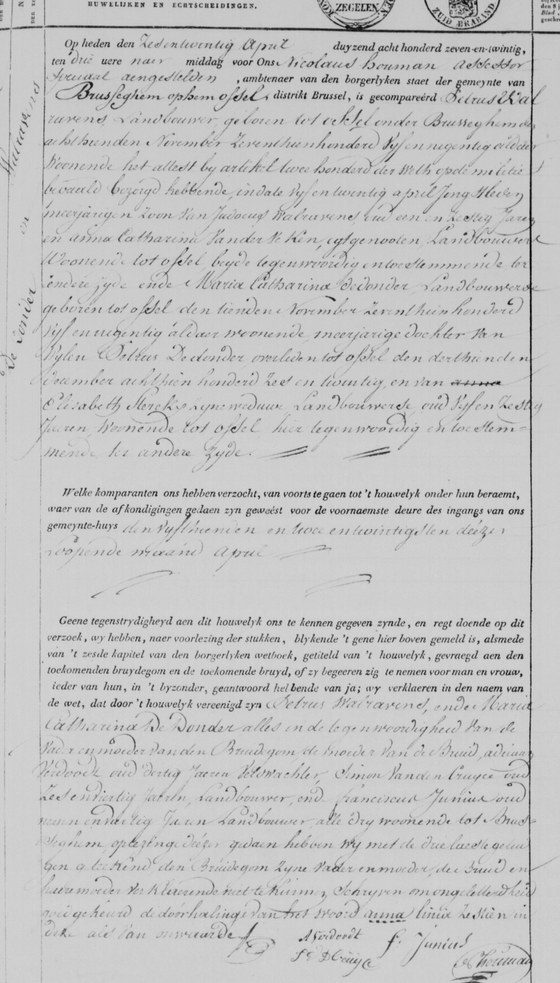 HUWELIJKEN EN ECHTSCHEIDINGEN.
ZEGELEN
ZUID BRABAND
De Donder en Walravens
Op heden den Zesentwintig April duyzend acht honderd zeven-en-twintig,
ten drie uere naer middag voor Ons Nicolaus houman assessor
aengestelden , ambtenaer van den borgerlyken staet der gemeynte van
Brusseghem ophem ossel, distrikt Brussel, is gecompareërd Petrus Wal
ravens Landbouwer, geboren tot ossel onder Brusseghem den
achthienden November Zeventhienhonderd Vyfennegentig aldaer
Woonende het attest by artikel twee honderd der Weth op de militie
bepaeld bezorgd hebbende, in date Vyfentwintig april Jongstleden
meerjarigen Zoon Van Judocus Walravens oud een en Zestig Jaren
en anna Catharina Vander Veken, egtgenooten, Landbouwers
Woonende tot ossel beyde tegenwoordig en toestemmende ter
eendere zyde ende Maria Catharina Dedonder Landbouwerse
geboren tot ossel den tienden November Zeventhien honderd
Vyfennegentig aldaer woonende, meerjarige dochter Van
Wylen Petrus Dedonder overleden tot ossel den derthienden
December achthien honderd Zes en twintig, en van anna
Elisabeth Sterckx zyne weduwe Landbouwerse oud Vyf en Zestig
Jaeren Woonende tot ossel hier tegenwoordig en toestem-
mende ter andere Zyde.
Welke komparanten ons hebben verzocht, van voorts te gaen tot 't houwelyk onder hun beraemt,
waer van de afkondigingen gedaen zyn geweëst voor de voornaemste deure des ingangs van ons
gemeynte-huys den Vyfthienden en twee en twintigsten dezer
loopende maand April
Geene tegenstrydigheyd aen dit houwelyk ons te kennen gegeven zynde, en regt doende op dit
verzoek, wy hebben, naer voorlezing der stukken, blykende 't gene hier boven gemeld is, alsmede
van 't zesde kapitel van den borgerlyken wetboek, getiteld van 't houwelyk, gevraegd aen den
toekomenden bruydegom en de toekomende bruyd, of zy begeeren zig te nemen voor man en vrouw,
ieder van hun, in 't byzonder, geantwoord hebbende van ja; wy verklaeren in den naem van
de wet, dat door 't houwelyk vereenigd zyn Petrus Walravens, ende Maria
Catharina De Donder alles in de tegenwoordigheid Van de
Vader en moeder van den Bruidgom de moeder Van de Bruid, adriaen
Verdoodt oud dertig Jaeren Veldwachter, Simon Vanden Cruyce oud
Zesenveertig Jaeren, Landbouwer, end franciscus Junius oud
negen en veertig Jaren Landbouwer alle dry woonende tot Brus-
seghem, op lezing dezer gedaen hebben wy met de drie laeste getui-
gen geteekend den Bruidegom Zyne Vader en moeder, de Bruid en
haere moeder Verklaerende niet te kunnen Schryven om ongeletterdheid
goedgekeurd de doorhaelinge van het woord anna linie Zestien en
deze als van onwaerde
A Verdoodt f. Junius
Sr. V Cruyce Houman